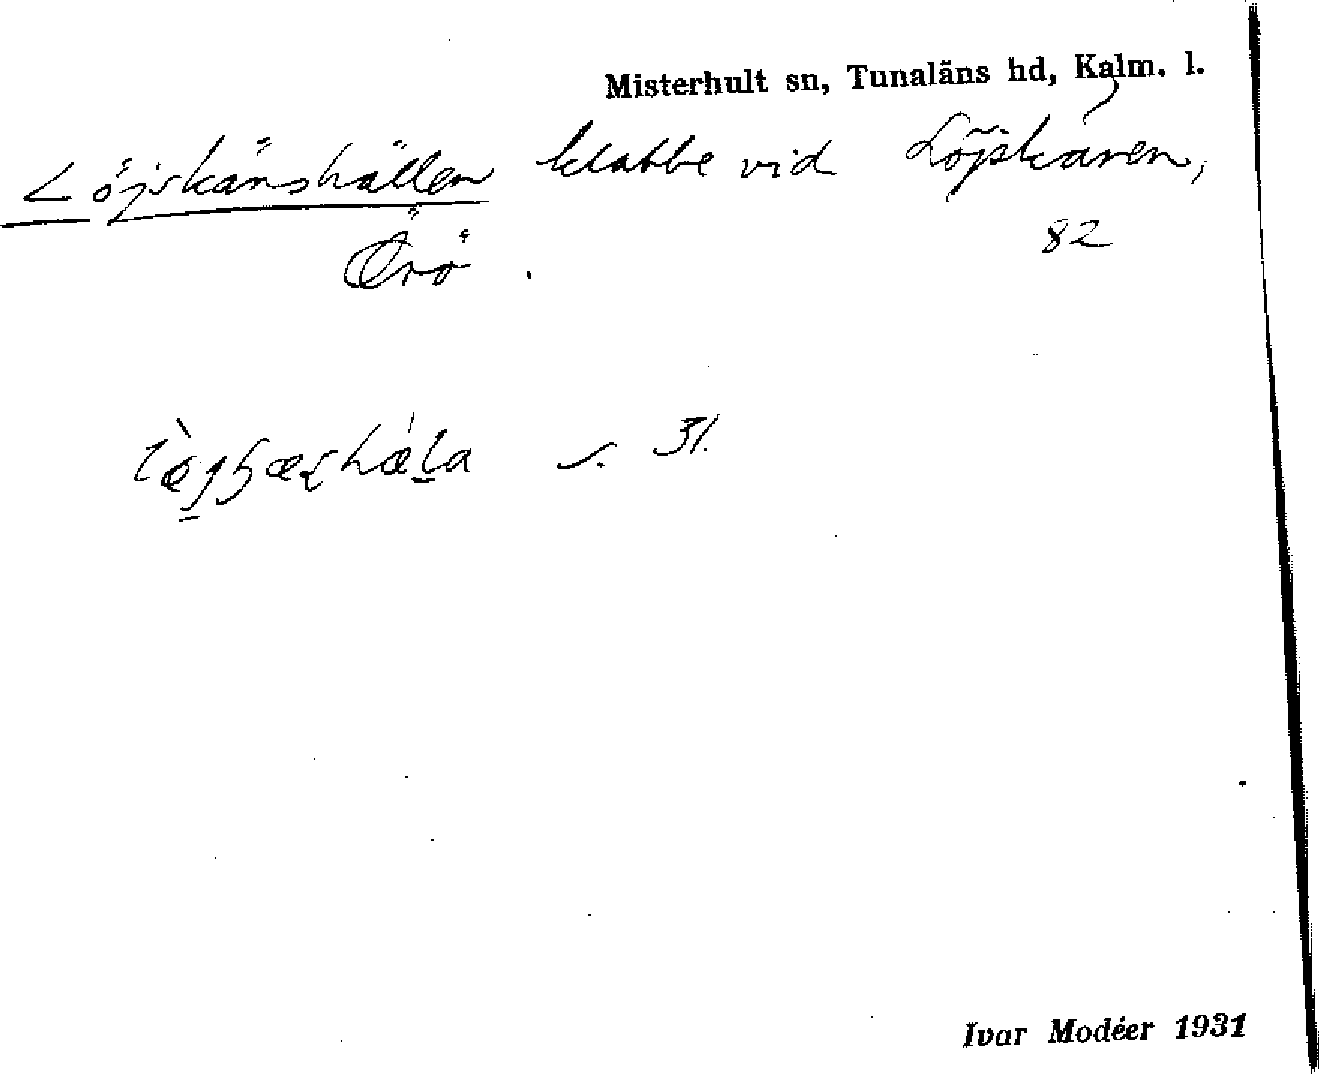 Misterhult sn, Tunaläns hd, Kalm. l.
Löjskärshällen klabbe vid Löjskären,
Örö. 82
s. 31.
Ivar Modéer 1931